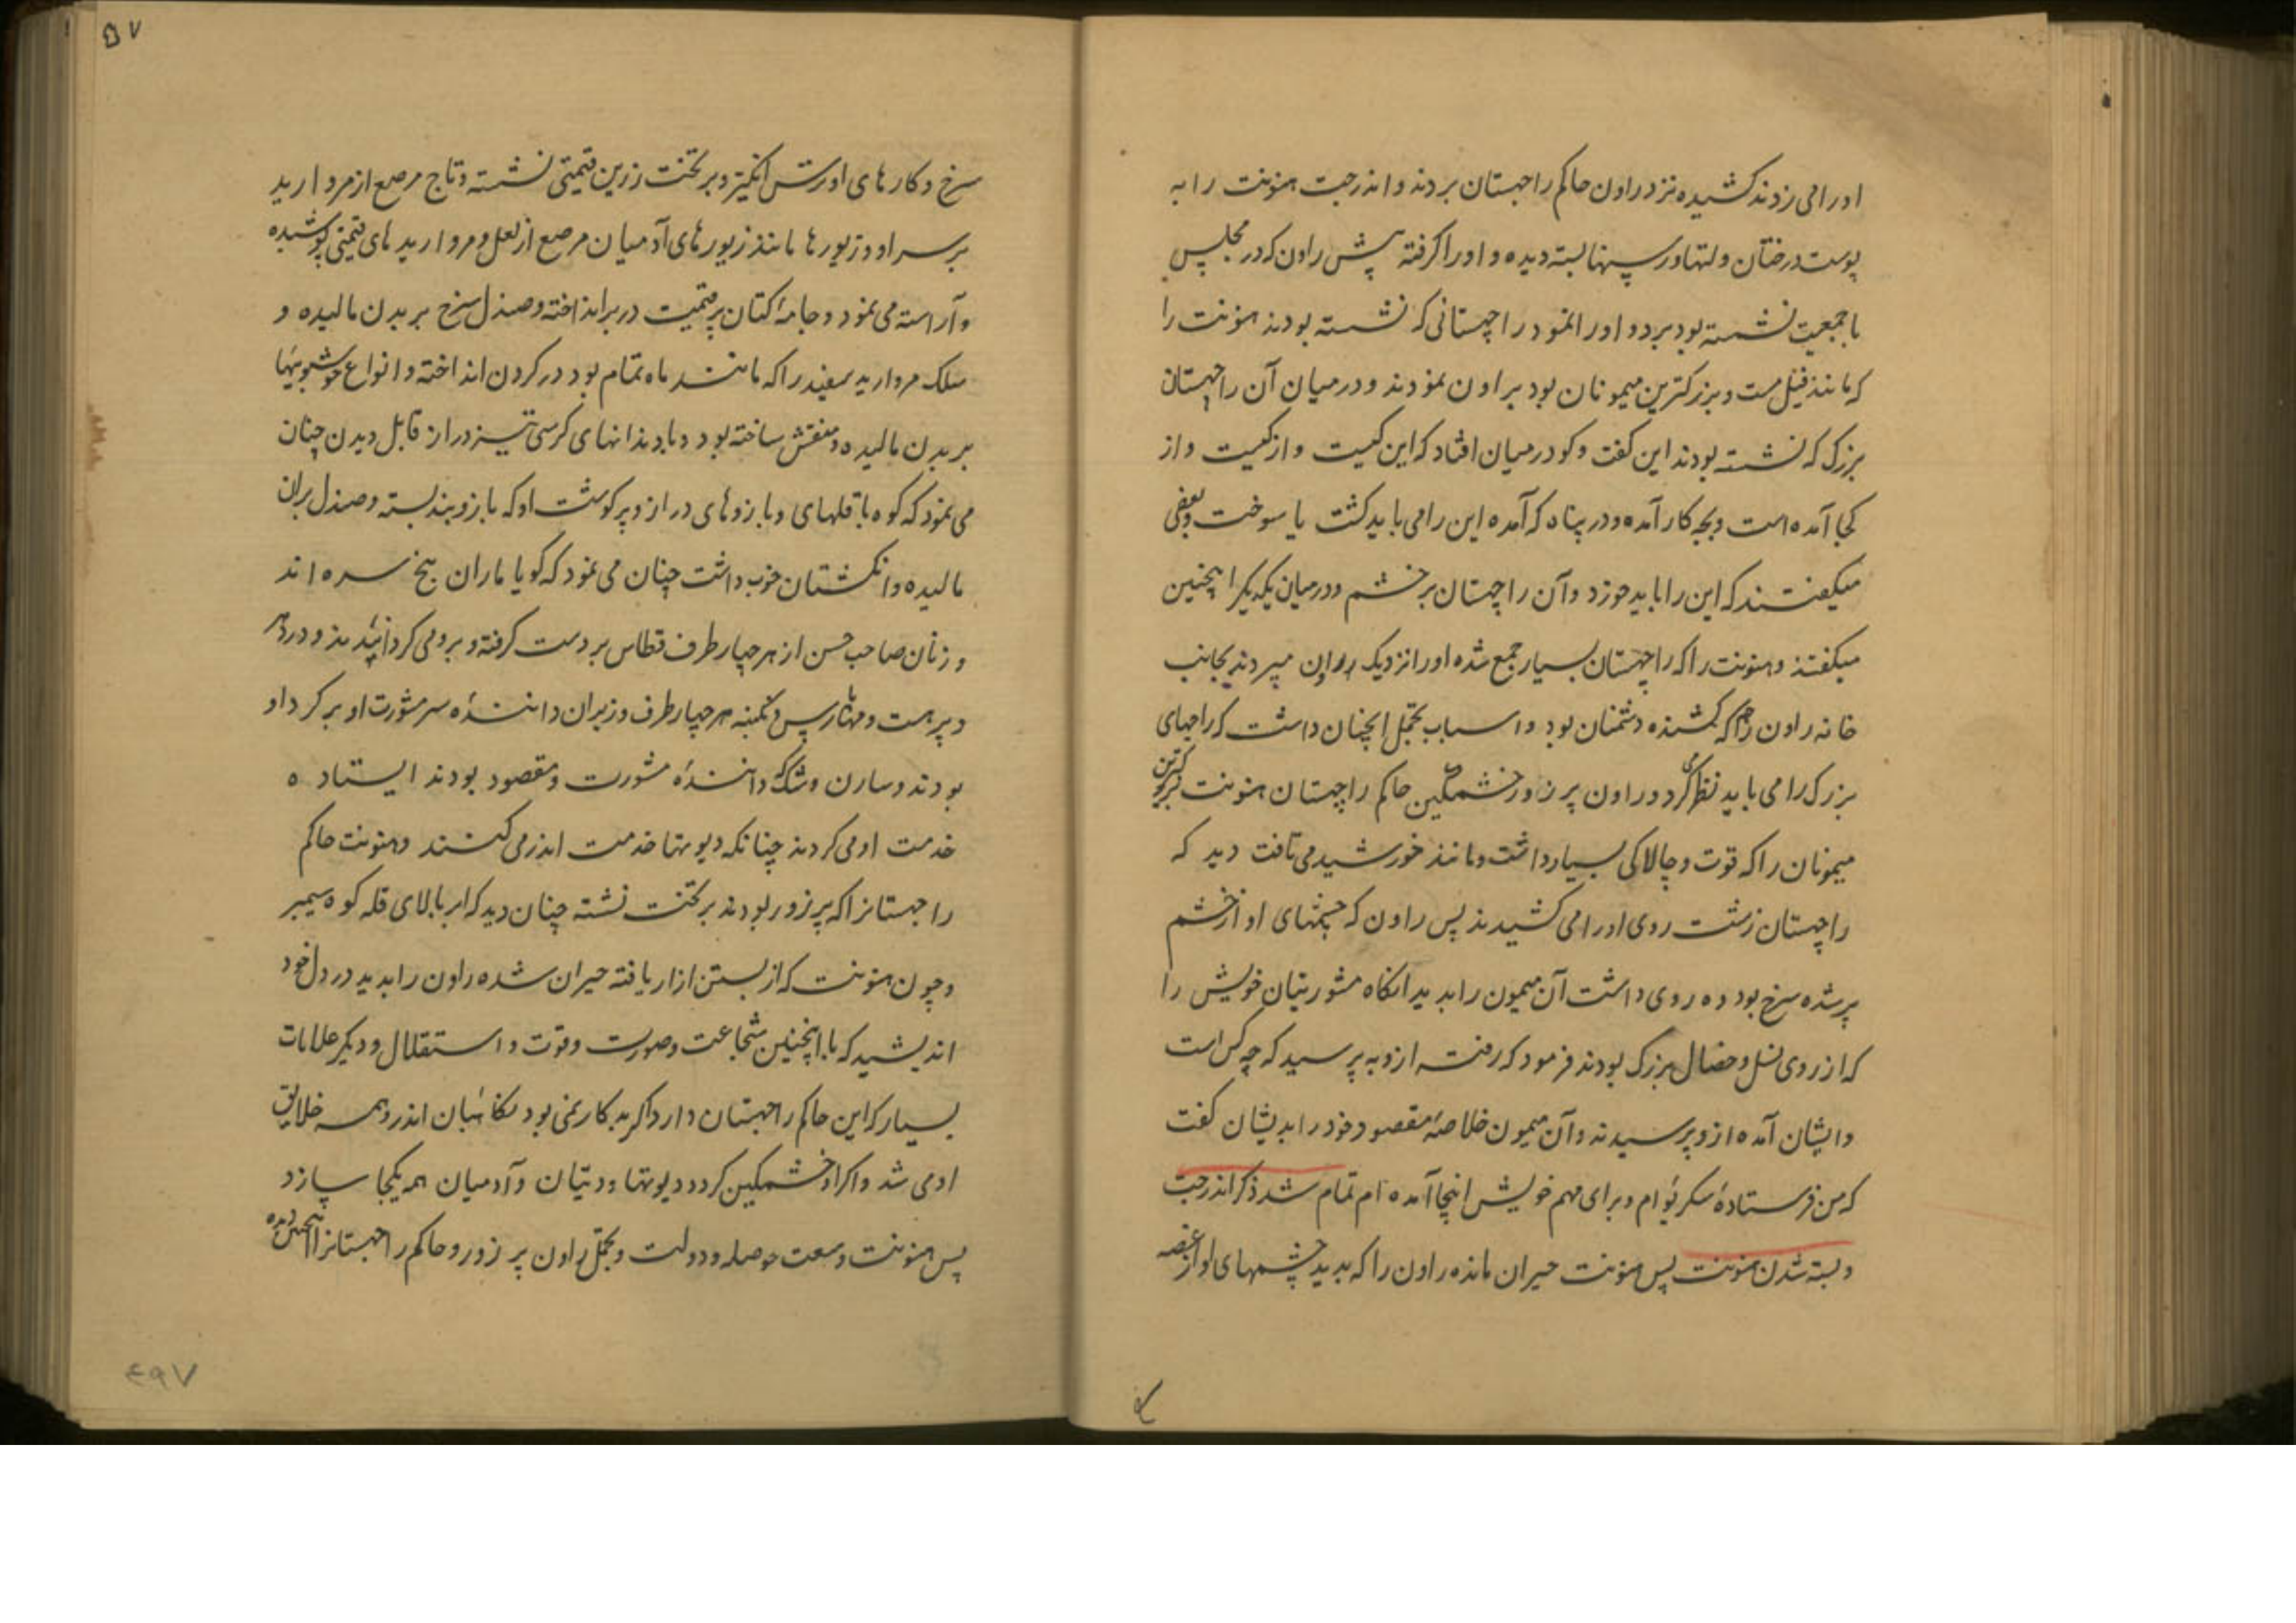 اورا می زدند کشیده نزد راون حاکم راچهستان بردند و اندرجت هنونت را به
پوست درختان و لتها و رسنها بسته دیده و اورا گرفته پیش راون که در مجلس
با جمعیت نشسته بود برد و اورا نمود راچهستانی که نشسته بودند هنونت را
که مانند فیل مست و بزرکترین میمونان بود براون نمودند و در میان آن راچهستان
بزرک که نشسته بودند این کفت و کو در میان افتاد که این کیست و از کیست و از
کجا آمده است و بچه کار آمده و در پناه که آمده این را می باید کشت یا سوخت و بعضی
میکفتند که این را باید خورد و آن راچهستان بر خشم و در میان یکدیکر اینچنین
میکفتند و هنونت را که راچهستان بسیار جمع شده اورا نزدیک راون میبردند بجانب
خانه راون راجه که کشنده دشمنان بود و اسباب تجمل اینچنان داشت که راجهای
بزرک را می باید نظر کرد و راون پر زور خشمکین حاکم راچهستان هنونت بزرکترین
میمونان را که قوت و چالاکی بسیار داشت و مانند خورشید می تافت دید که
راچهستان زشت روی اورا می کشیدند پس راون که چشمهای او از خشم
پر شده سرخ بود و ده روی داشت آن میمون را بدید انکاه مشورتیان خویش را
که از روی نسل و خصال بزرک بودند فرمود که رفته ازو به پرسید که چه کس است
و ایشان آمده ازو پرسیدند و آن میمون خلاصهٔ مقصود خود را بدیشان کفت
که من فرستادهٔ سکریوام و برای مهم خویش اینجا آمده ام تمام شد ذکر اندرجت
و بسته شدن هنونت پس هنونت حیران مانده راون را که بدید چشمهای او از غصه
سرخ و کارهای او رشک انکیز و بر تخت زرین قیمتی نشسته و تاج مرصع از مروارید
بر سر او و زیورها مانند زیورهای آدمیان مرصع از لعل و مروارید های قیمتی پوشیده
و آراسته می نمود و جامهٔ کتان پر قیمت در بر انداخته و صندل سرخ بر بدن مالیده و
سلک مروارید سفید را که مانند ماه تمام بود در کردن انداخته و انواع خوشبویها
بر بدن مالیده و منقش ساخته بود و با دندانهای کرسی تیز دراز قابل دیدن چنان
می نمود که کوه با قلهای و بازوهای دراز و پر کوشت او که بازوبند بسته و صندل بران
مالیده و انکشتان خوب داشت چنان می نمود که کویا ماران پنج سره اند
و زنان صاحب حسن از هر چهار طرف قطاس بر دست کرفته و برو می کردانیدند و دردهر
و پرهست و مهاپارس و نکمبنه هر چهار طرف وزیران دانندهٔ سر مشورت او بر کرد او
بودند و سارن و شک دانندهٔ مشورت و مقصود بودند ایستاده
خدمت او می کردند چنانکه دیوتها خدمت اندر می کنند و هنونت حاکم
راچهستانرا که پر زور بودند بر تخت نشسته چنان دید که ابر بالای قله کوه سیمیر
و چون هنونت که از بستن ازار یافته حیران شده راون را بدید در دل خود
اندیشید که با اینچنین شجاعت و صورت و قوت و استقلال و دیکر علامات
بسیار که این حاکم راچهستان دارد اکر بدکار نمی بود نکاهبان اندر و همه خلایق
او می شد و اکر او خشمکین کردد دیوتها و دیتان و آدمیان همه یکجا سازد
پس هنونت وسعت حوصله و دولت و تجمل راون پر زور و حاکم راچهستانرا اینچنین دیده